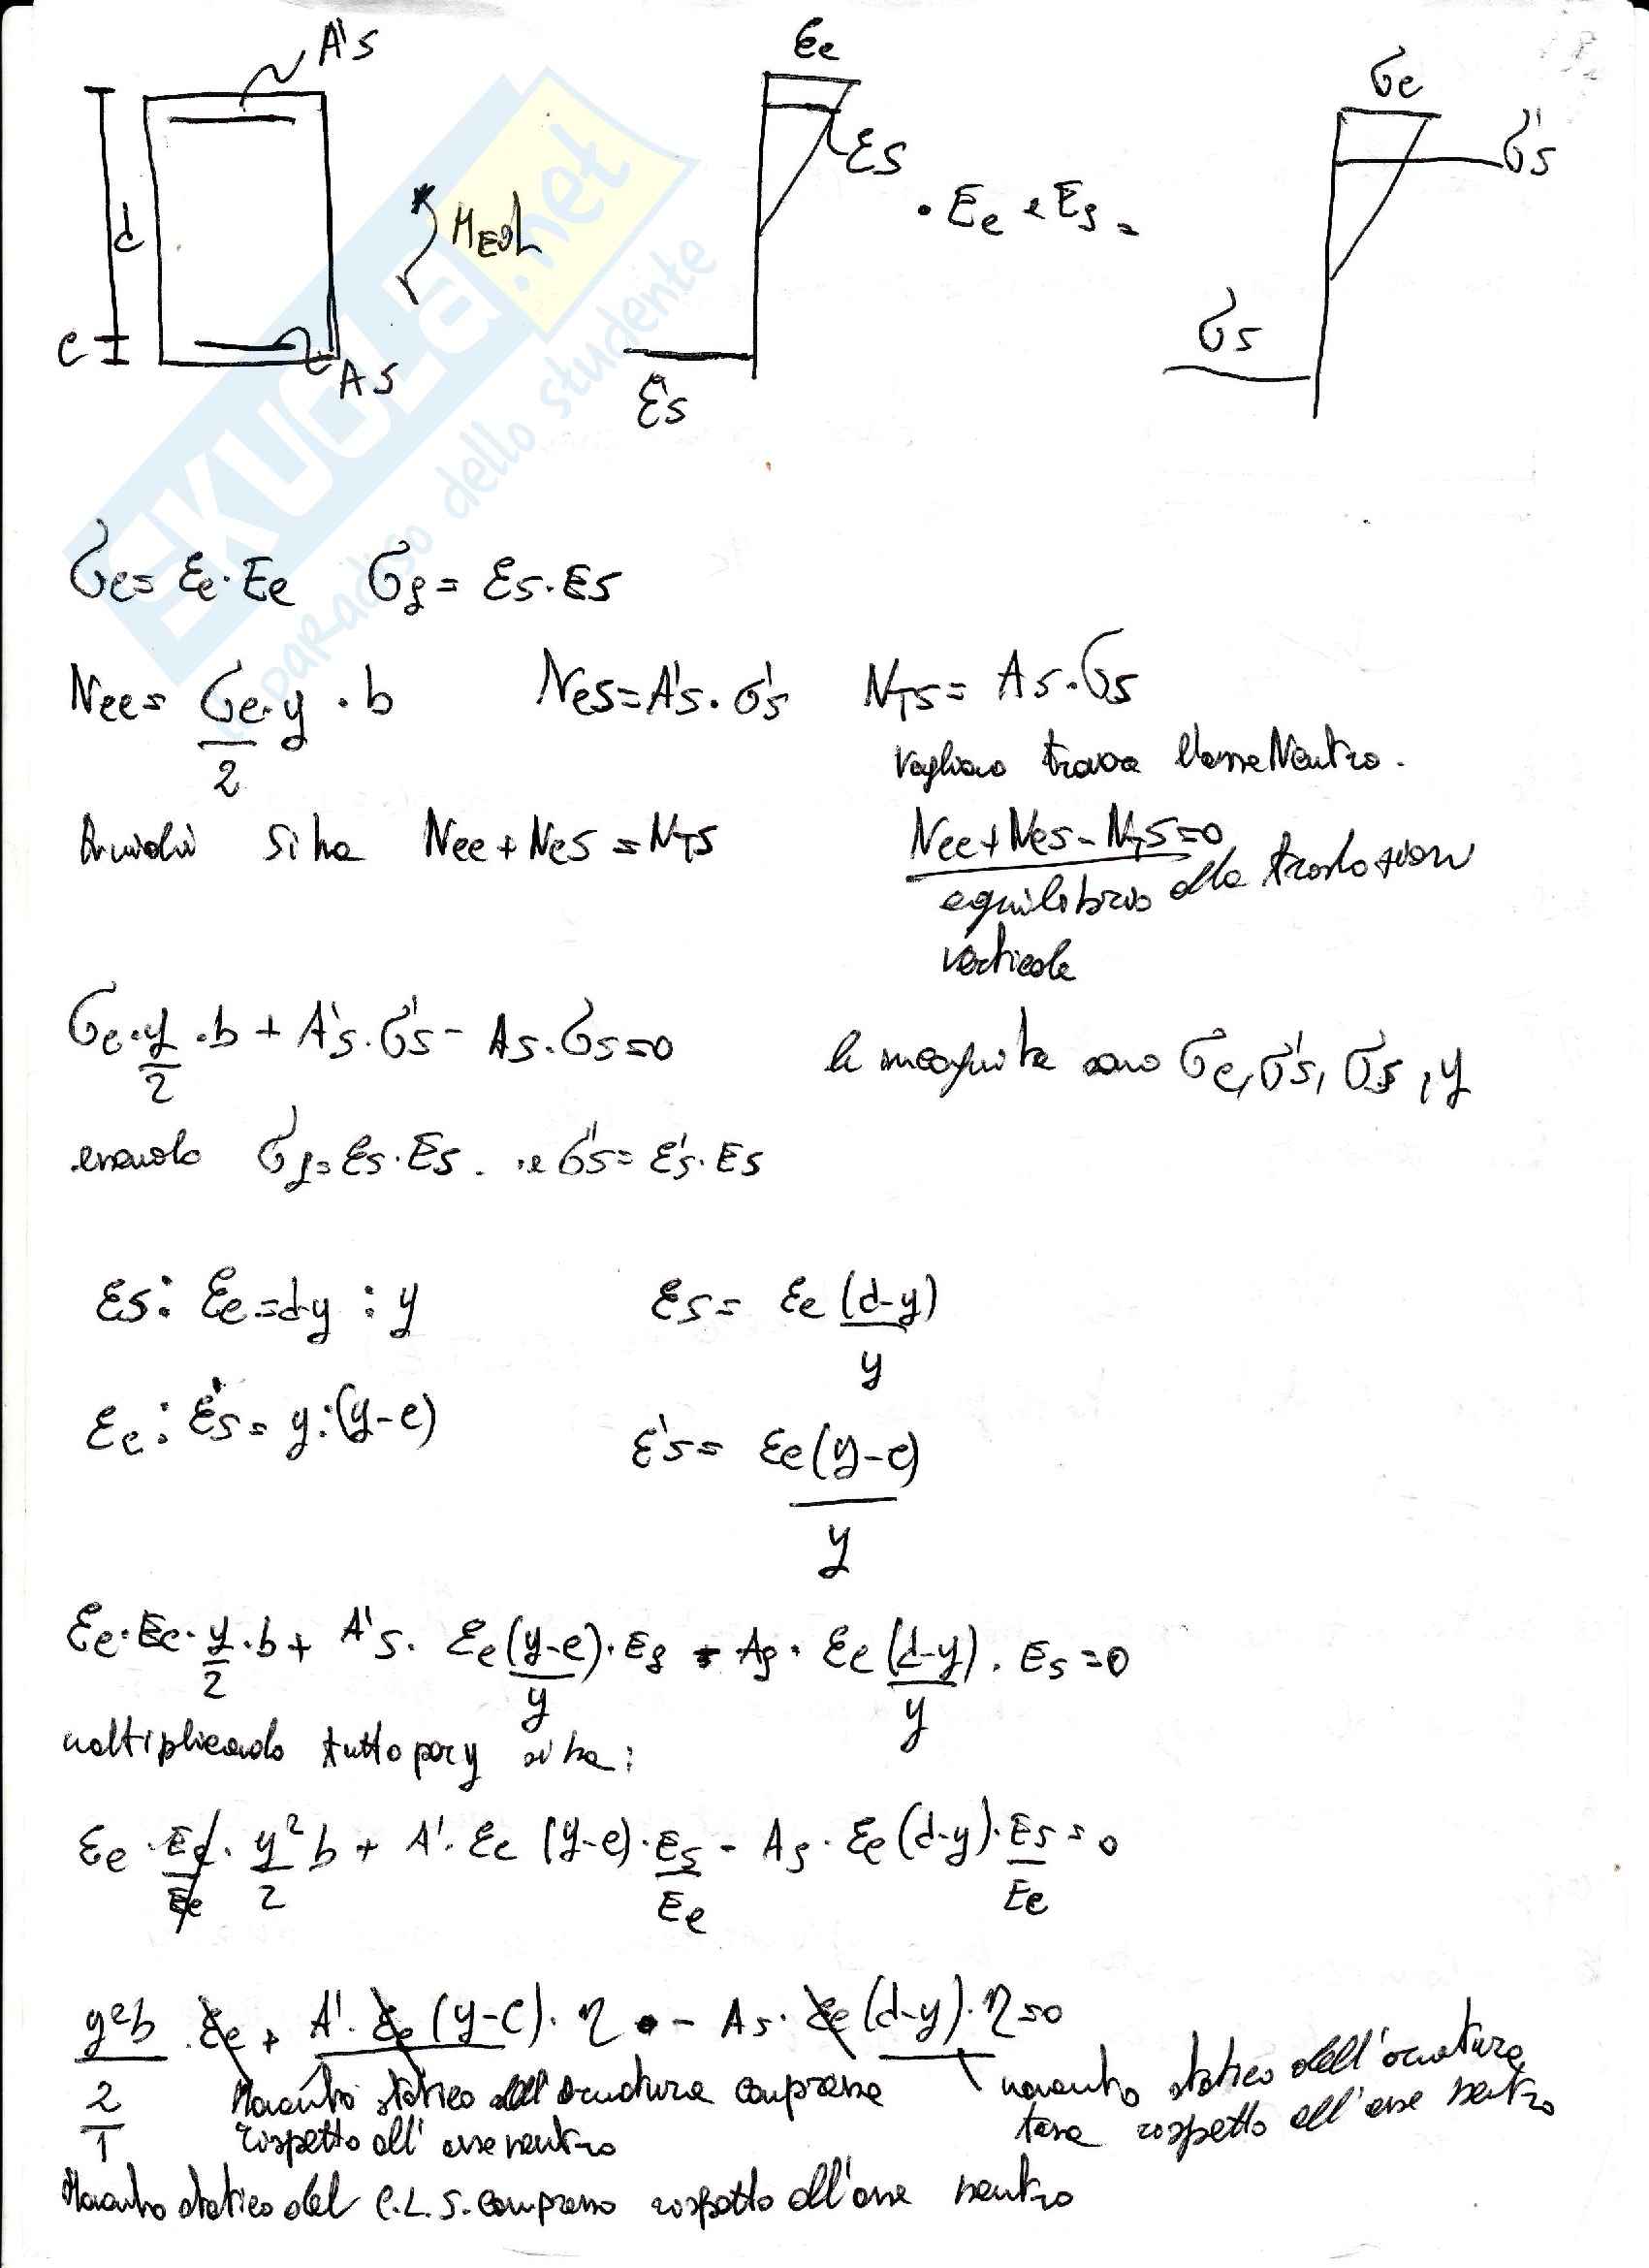 A's
εc
σc
σ's
εs
d
MEd
• Ec e Es =
c
As
σs
ε's
SKUOLA.net
il paradiso dello studente
σc = εc·Ec σs = εs·Es
Ncc = σc·y/2 · b Ncs = A's·σ's NTs = As·σs
Vogliamo trovare l'asse Neutro.
Quindi si ha Ncc + Ncs = NTs Ncc + Ncs - NTs = 0
equilibrio alla traslazione
verticale
σc·y/2·b + A's·σ's - As·σs = 0 le incognite sono σc, σ's, σs, y
essendo σs = εs·Es. e σ's = ε's·Es
εs : εc = d-y : y εs = εc (d-y)/y
εc : ε's = y : (y-c) ε's = εc (y-c)/y
εc·Ec·y/2·b + A's·εc (y-c)/y·Es - As·εc (d-y)/y·Es = 0
moltiplicando tutto per y si ha:
εc·Ec/Ec·y²/2 b + A'·εc (y-c)·Es/Ec - As·εc (d-y)·Es/Ec = 0
y²b/2·εc + A'·εc (y-c)·η - As·εc (d-y)·η = 0
1
Momento statico dell'armatura compressa
rispetto all'asse neutro
momento statico dell'armatura
tesa rispetto all'asse neutro
Momento statico del C.L.S. compresso rispetto all'asse neutro